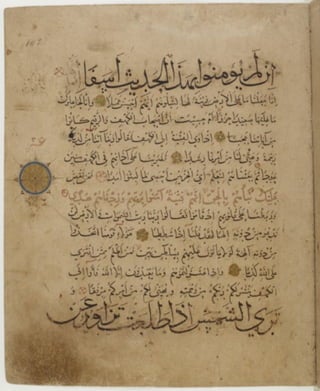 ان لم يومنوا بهذا الحديث اسفا
انا جعلنا ما على الارض زينة لها لنبلوهم ايهم احسن عملا وانا لجاعلون
ما عليها صعيدا جرزا ام حسبت ان اصحاب الكهف والرقيم كانوا
من اياتنا عجبا اذ اوى الفتية الى الكهف فقالوا ربنا اتنا من لدنك
رحمة وهيئ لنا من امرنا رشدا فضربنا على اذانهم في الكهف سنين
عددا ثم بعثناهم لنعلم اي الحزبين احصى لما لبثوا امدا نحن نقص
عليك نباهم بالحق انهم فتية امنوا بربهم وزدناهم هدى
وربطنا على قلوبهم اذ قاموا فقالوا ربنا رب السموات والارض لن
ندعو من دونه الها لقد قلنا اذا شططا هولاء قومنا اتخذوا
من دونه الهة لولا ياتون عليهم بسلطان بين فمن اظلم ممن افترى
على الله كذبا واذ اعتزلتموهم وما يعبدون الا الله فاووا الى
الكهف ينشر لكم ربكم من رحمته ويهيئ لكم من امركم مرفقا و
ترى الشمس اذا طلعت تزاور عن